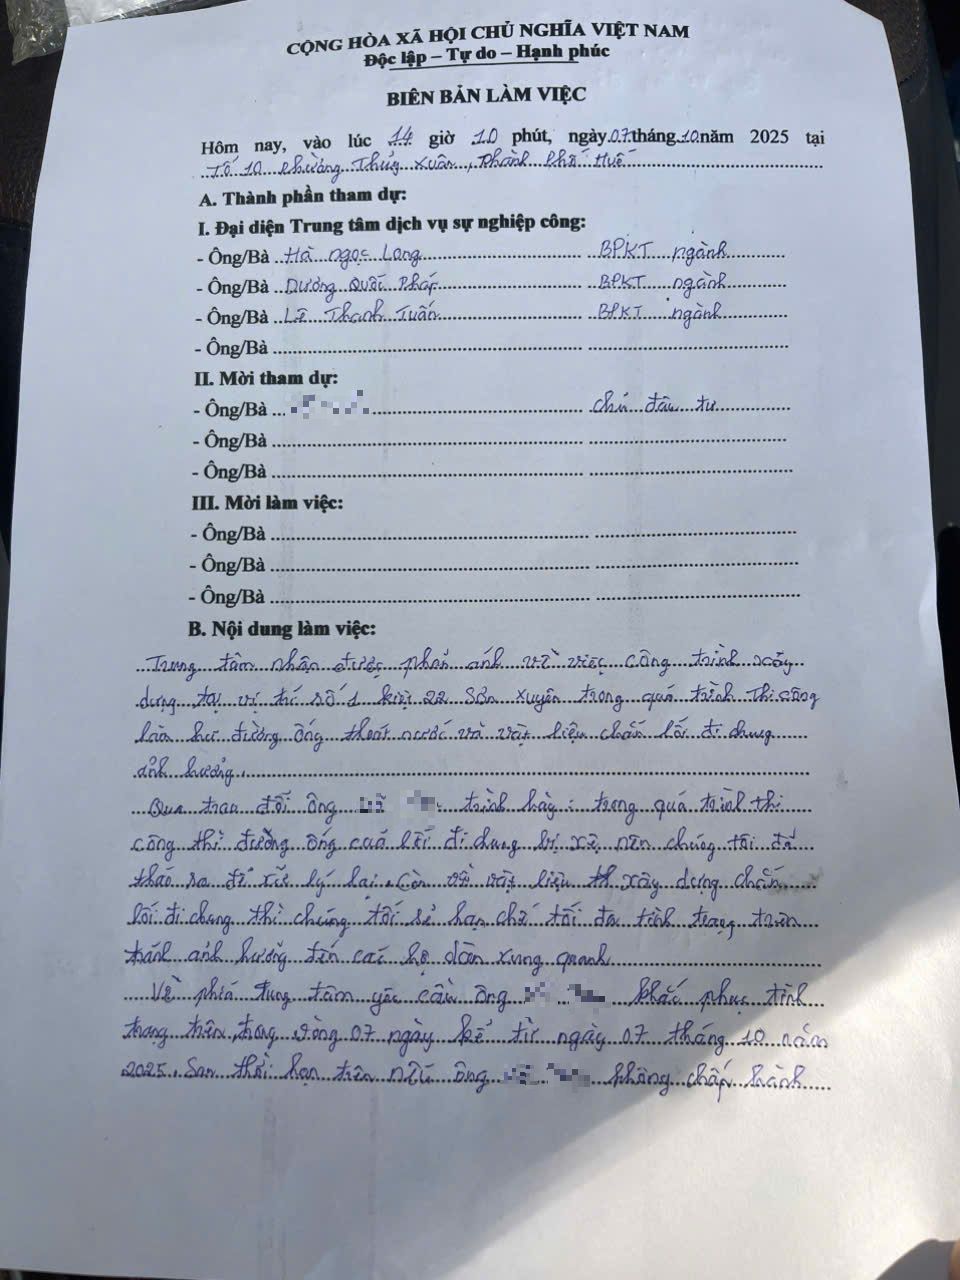 CỘNG HÒA XÃ HỘI CHỦ NGHĨA VIỆT NAM
Độc lập – Tự do – Hạnh phúc
BIÊN BẢN LÀM VIỆC
Hôm nay, vào lúc 14 giờ 10 phút, ngày 07 tháng 10 năm 2025 tại
Tổ 10 phường Thủy Xuân, thành phố Huế
A. Thành phần tham dự:
I. Đại diện Trung tâm dịch vụ sự nghiệp công:
- Ông/Bà Hà Ngọc Long BPKT ngành
- Ông/Bà Dương Quốc Pháp BPKT ngành
- Ông/Bà Lê Thanh Tuấn BPKT ngành
- Ông/Bà
II. Mời tham dự:
- Ông/Bà chủ đầu tư
- Ông/Bà
- Ông/Bà
III. Mời làm việc:
- Ông/Bà
- Ông/Bà
- Ông/Bà
B. Nội dung làm việc:
Trung tâm nhận được phản ánh về việc công trình xây
dựng tại vị trí số 1 kiệt 22 Sơn Xuyên trong quá trình thi công
làm hư đường ống thoát nước và vật liệu chắn lối đi chung
ảnh hưởng.
Qua trao đổi ông trình bày: trong quá trình thi
công thì đường ống của lối đi chung bị nên chúng tôi đã
tháo ra để xử lý lại. Còn về vật liệu xây dựng chắn
lối đi chung thì chúng tôi sẽ hạn chế tối đa tình trạng trên
tránh ảnh hưởng đến các hộ dân xung quanh
Về phía trung tâm yêu cầu ông khắc phục tình
trạng trên trong vòng 07 ngày kể từ ngày 07 tháng 10 năm
2025. Sau thời hạn trên nếu ông không chấp hành